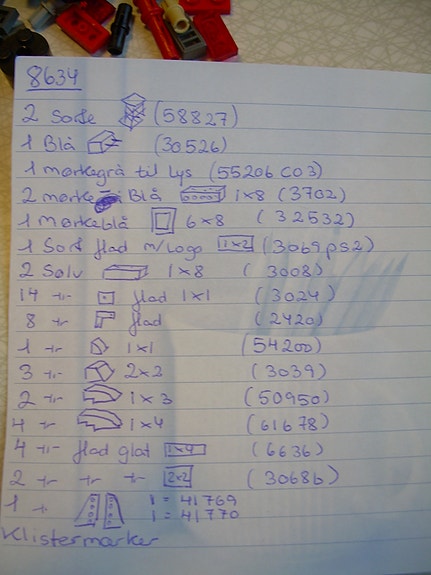 8634
2 Sorte (58827)
1 Blå (30526)
1 mørkegrå til Lys (55206 C03)
2 mørke Blå 1x8 (3702)
1 Mørkeblå 6x8 (32532)
1 Sort flad m/Logo 1x2 (3069ps2)
2 Sølv 1x8 (3008)
14 -11- flad 1x1 (3024)
8 -11- flad (2420)
1 -11- 1x1 (54200)
3 -11- 2x2 (3039)
2 -11- 1x3 (50950)
4 -11- 1x4 (61678)
4 -11- flad glat 1x4 (6636)
2 -11- -11- -11- 2x2 (3068b)
1 -11- 1 = 41769
1 = 41770
Klistermærker